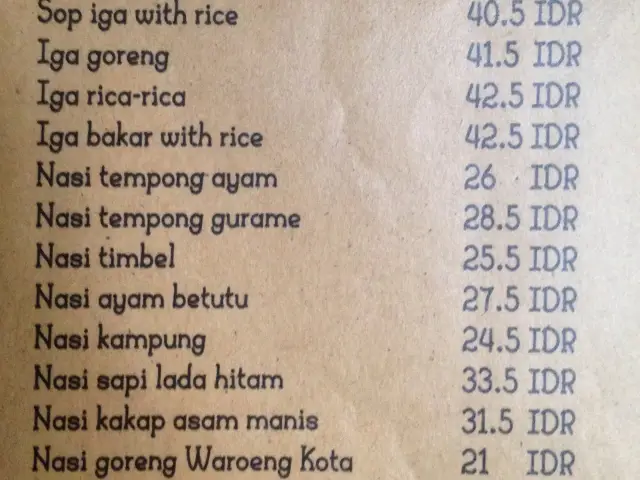 Sop iga with rice 40.5 IDR
Iga goreng 41.5 IDR
Iga rica-rica 42.5 IDR
Iga bakar with rice 42.5 IDR
Nasi tempong ayam 26 IDR
Nasi tempong gurame 28.5 IDR
Nasi timbel 25.5 IDR
Nasi ayam betutu 27.5 IDR
Nasi kampung 24.5 IDR
Nasi sapi lada hitam 33.5 IDR
Nasi kakap asam manis 31.5 IDR
Nasi goreng Waroeng Kota 21 IDR